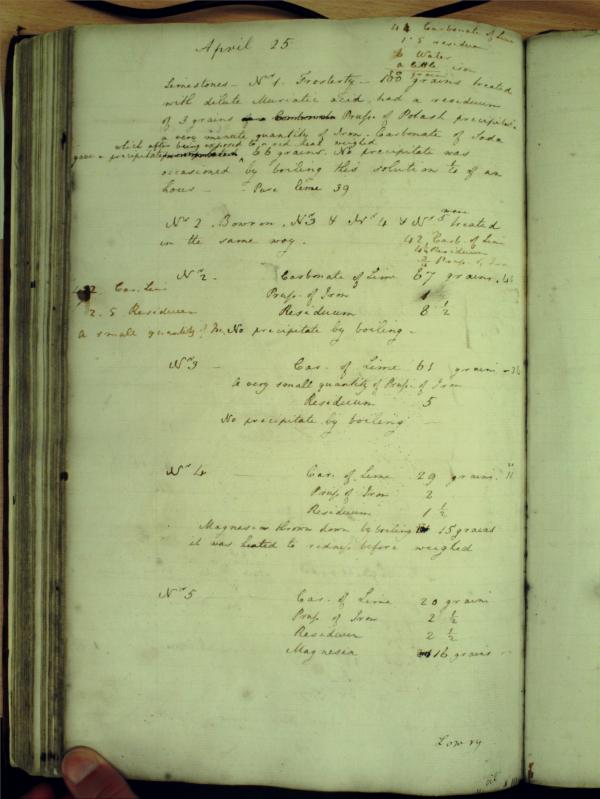 April 25
44 Carbonate of Lime
1.5 residuum
Water
a little iron
Limestones - No 1. Frosterly - 100 grains treated
with dilute Muriatic acid, had a residuum
of 3 grains Pruss. of Potash precipitate
a very minute quantity of Iron. Carbonate of Soda
which after being exposed to a red heat weighed
gave a precipitate 66 grains. No precipitate was
occasioned by boiling this solution ¼ of an
hour - Pure lime 39
No 2. Bowron. No 3 & No 4 & No 5 were treated
in the same way.
42 Carb. of Lime
Residuum
Pruss. of Iron
No 2. Carbonate of Lime 67 grains
Car. Lime
Pruss. of Iron 1
2.5 Residuum
Residuum 8 ½
a small quantity of
No precipitate by boiling -
No 3 - Car. of Lime 61 grains
A very small quantity of Pruss. of Iron
Residuum 5
No precipitate by boiling -
No 4 - Car. of Lime 29 grains. 11
Pruss. of Iron 2
Residuum 1 ½
Magnesia thrown down by boiling 15 grains
it was heated to redness before weighed
No 5 - Car. of Lime 20 grains
Pruss. of Iron 2 ½
Residuum 2 ½
Magnesia 16 grains -
Lowry